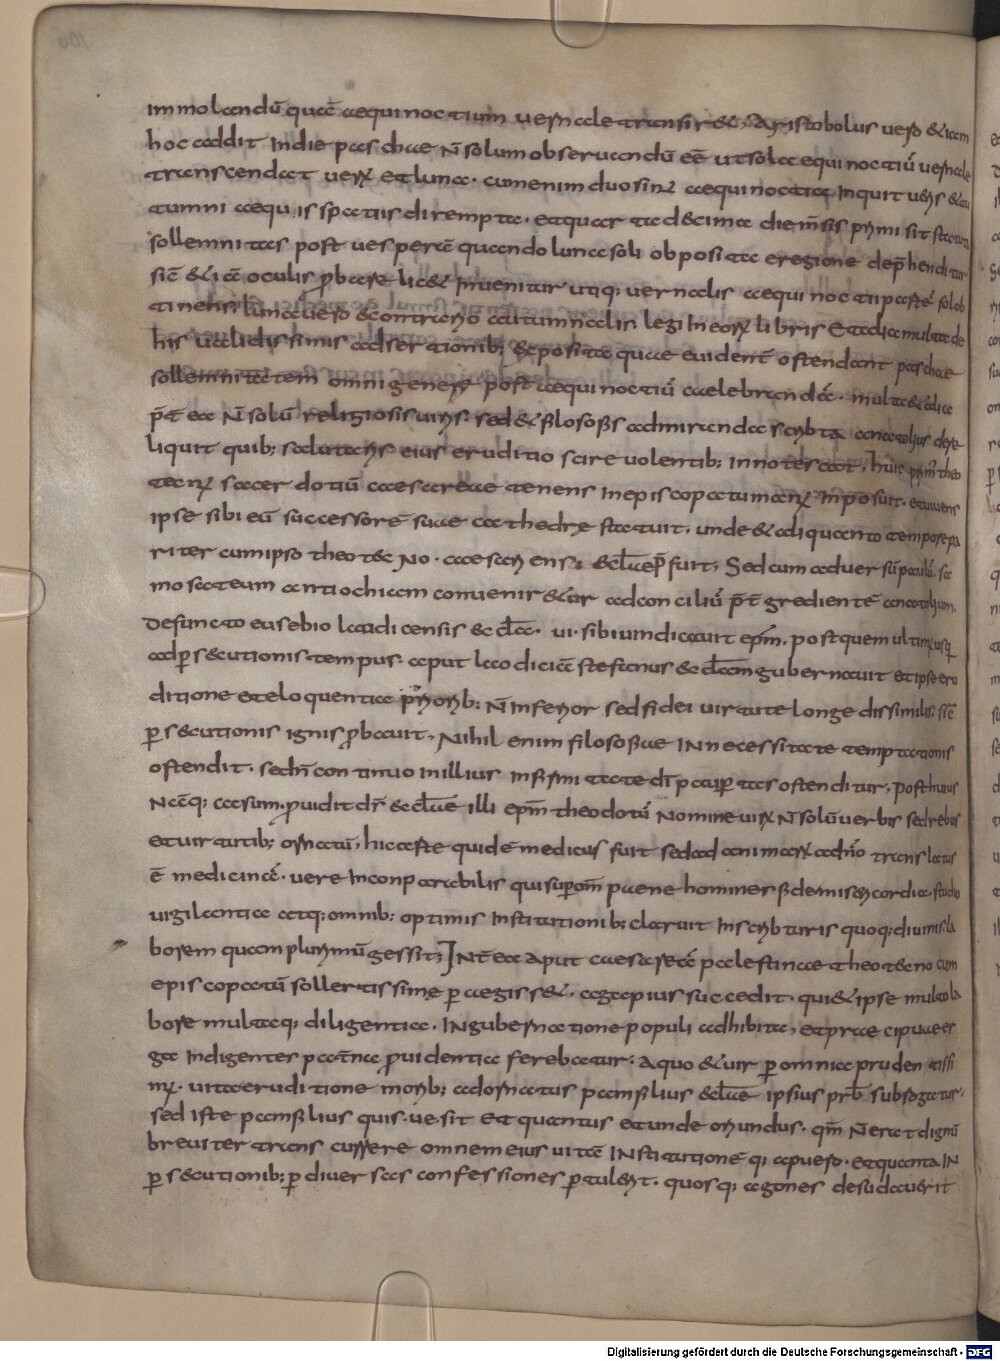 immolandū quā aequinoctium uernale transir&. Aristobolus uero &iam
hoc addit In die paschae N̄ solum obseruandū eē ut sol aequinoctiū uernale
transcendat uerꝝ et lunae. cum enim duo sint aequinoctia Inquit uernꝰ & au
tumni aequis spatiis dirempta. et quarta decima die m̄sis primi sit statuta
sollemnitas post uesperā quando luna e soli obposita e regione depraehenditur
siē & iā oculis ꝓbare lic& Inuenitur utiq; uernalis aequinoctii partē sol ob
tinens luna uero e contrario autumnalis legi In eorꝝ libris Et adic multa de
his ualidissimis adsertionib; exposita quae euident ostendant paschae
sollemnitatem omni genere post aequinoctiū caelebrandā. multa & edic
p̄t ea N̄ solū religiosis uiris. sed & filosofis admiranda scribta anatolius dere
liquit quib; sedutaris eius eruditio scire uolentib; Innotescat. huic prim̄ theo
tecnꝰ sacerdotiū caesareae tenens In episcopatum manꝰ Inposuit. et uiuens
ipse sibi eū successorē suae cathedrę statuit. unde & aliquanto tempore pa
riter cum ipso theotecNo. caesariensi. &cl̄aep̄fuit. Sed cum aduersū paulū. sa
mosateum antiochiam conuenir&ur ad conciliū p̄t gredientē anatolium.
Defuncto eusebio laudicensis &cl̄ae. ui. sibi undicauit ep̄m. post quem ultimꝰ usq
ad ꝑsecutionis tempus. aput laodiciā stefanus &cl̄am gubernauit et ipse eru
ditione et eloquentia priorib; N̄ Inferior sed fidei uirtute longe dissimilis. siē
ꝑsecutionis ignis ꝓbauit. Nihil enim filosofiae IN necessitate temptationis
ostendit. sed N̄ continuo In illius Infirmitate dī paupertas ostenditur, post huius
Ncāq; casum. ꝓuidit dr̄ &cl̄ae illi ep̄m theodotū Nomine uirꝝ N̄ solū uerbis sed rebus
et uirtutib; ornatū, hic arte quidē medicus fuit sed ad animarꝝ ad dn̄o translatus
ē medicinā. uere Inconparabilis qui supom̄ paene homines fide misericordia. studio
uigilantia atq; omnib; optimis Institutionib; claruit In scribturis quoq; diuinis la
borem quam plurimū gessit; INt̄ ea Aput caesareā palestinae theotecno cum
episcopatū sollertissime ꝑegiss&, agapius succedit. qui & ipse multo la
bore multaq; diligentia. IN gubernatione populi adhibita, et praecipuae er
ga Indigenter patn̄a ꝓuidentia ferebatur. A quo & uir ꝑ omnia prudentissi
mꝰ. uitae eruditione morib; adornatus pamfilius &cl̄ae ipsius prb̄ subrogatus.
sed iste pamfilius quis. ue. sit Et quantus et unde oriundus. qm̄ N̄ erat dignū
breuiter transcurrere omnem eius uitae INstitutionē q; a puero. et quanta IN
ꝑsecutionib; ꝑ diuersas confessiones ꝑtulerit. quosq; agones desudauerit
Digitalisierung gefördert durch die Deutsche Forschungsgemeinschaft - DFG